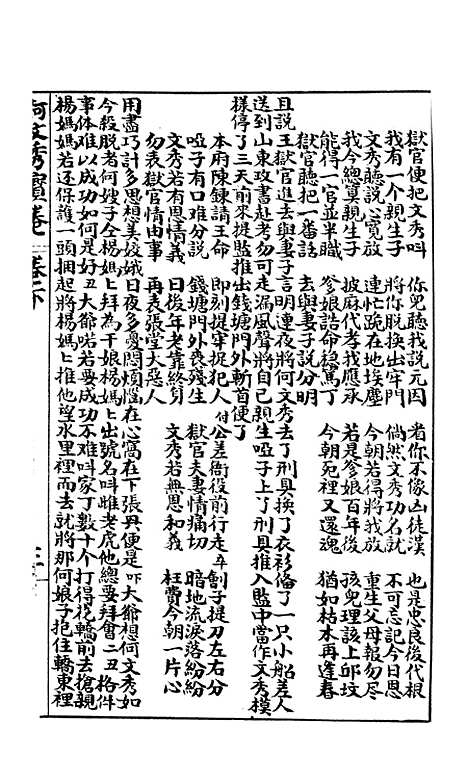 獄官便把文秀呌　你兒聽我說元因　看你不像凶徒漢　也是忠良後代根
我有一個親生子　將你脫換出牢門　倘然文秀功名就　不可忘記今日恩
文秀聽説心寬放　連忙跪在地埃塵　今朝若得將我放　重生父母報勿尽
我今總算親生子　披麻代孝我應承　若是爹娘百年後　孩兒理該上邱坟
能得一官並半職　爹娘誥命穩篤丁　今朝死裡又還魂　猶如枯木再逢春
獄官聽把一番話　去與妻子説分明
且説王獄官進去與妻子言明連夜將何文秀去了刑具換了衣衫俻了一只小船差人
送到山東攻書赴考勿可走漏風聲將自己親生啞子上了刑具推入監中當作文秀模
樣停了三天前來提監推出錢塘門外斬首便了
本府陳鍊請王命　即刻提牢捉犯人　付公差衙役前行走　劊子提刀左右分
啞子有口难分説　錢塘門外喪殘生　獄官夫妻情痛切　暗地流淚落紛紛
文秀若有恩情義　日後年老靠終身　文秀若無恩和義　枉費今朝一片心
勿表獄官情由事　再表張堂大惡人
用盡巧計多思想美姣娥日夜多憂悶煩惱在心窩在下張興便是吓大爺想何文秀如
今殺脱者何嫂子仝楊媽上拜為干娘楊媽上出號名呌雌老虎他總要拜會二丑格件
事体难以成功如何是好丑大爺喏若要成功不难呌家丁数十个打得花轎前去搶親
楊媽媽若还保護一頭捆起將楊媽上推他望水里裡而去就將那何娘子抱住轎東裡
何文秀寶卷　卷下